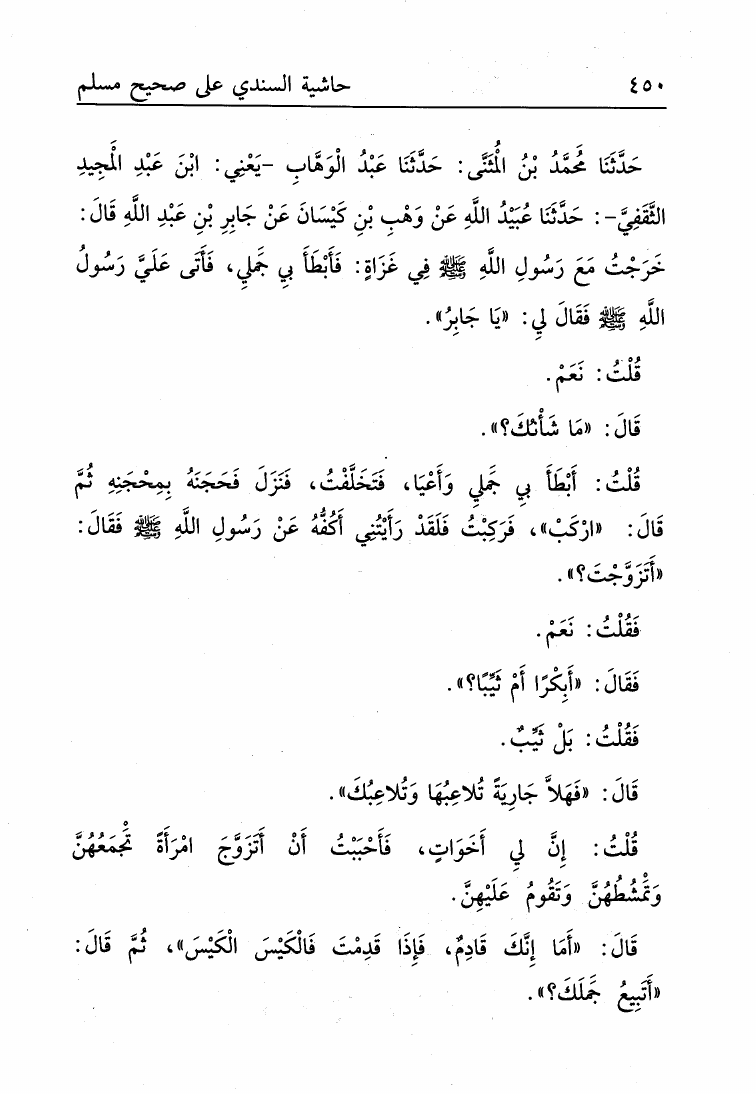 ٤٥٠ حاشية السندي على صحيح مسلم
حَدَّثَنَا مُحَمَّدُ بْنُ الْمُثَنَّى: حَدَّثَنَا عَبْدُ الْوَهَّابِ -يَعْنِي: ابْنَ عَبْدِ الْمَجِيدِ
الثَّقَفِيَّ-: حَدَّثَنَا عُبَيْدُ اللَّهِ عَنْ وَهْبِ بْنِ كَيْسَانَ عَنْ جَابِرِ بْنِ عَبْدِ اللَّهِ قَالَ:
خَرَجْتُ مَعَ رَسُولِ اللَّهِ ﷺ فِي غَزَاةٍ: فَأَبْطَأَ بِي جَمَلِي، فَأَتَى عَلَيَّ رَسُولُ
اللَّهِ ﷺ فَقَالَ لِي: «يَا جَابِرُ».
قُلْتُ: نَعَمْ.
قَالَ: «مَا شَأْنُكَ؟».
قُلْتُ: أَبْطَأَ بِي جَمَلِي وَأَعْيَا، فَتَخَلَّفْتُ، فَنَزَلَ فَحَجَنَهُ بِمِحْجَنِهِ ثُمَّ
قَالَ: «ارْكَبْ»، فَرَكِبْتُ فَلَقَدْ رَأَيْتُنِي أَكُفُّهُ عَنْ رَسُولِ اللَّهِ ﷺ فَقَالَ:
«أَتَزَوَّجْتَ؟».
فَقُلْتُ: نَعَمْ.
فَقَالَ: «أَبِكْرًا أَمْ ثَيِّبًا؟».
فَقُلْتُ: بَلْ ثَيِّبٌ.
قَالَ: «فَهَلاَّ جَارِيَةً تُلاَعِبُهَا وَتُلاَعِبُكَ».
قُلْتُ: إِنَّ لِي أَخَوَاتٍ، فَأَحْبَبْتُ أَنْ أَتَزَوَّجَ امْرَأَةً تَجْمَعُهُنَّ
وَتَمْشُطُهُنَّ وَتَقُومُ عَلَيْهِنَّ.
قَالَ: «أَمَا إِنَّكَ قَادِمٌ، فَإِذَا قَدِمْتَ فَالْكَيْسَ الْكَيْسَ»، ثُمَّ قَالَ:
«أَتَبِيعُ جَمَلَكَ؟».